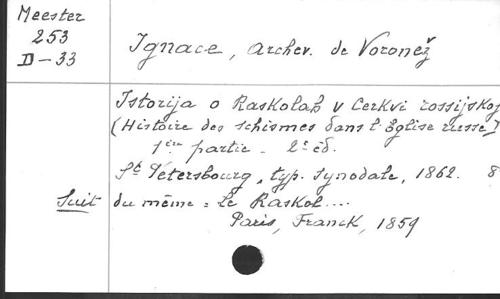 Meester
253
D-33
Ignace, archev. de Voronež
Istorija o Raskolah v Cerkvi rossijskoj
(Histoire des schismes dans l'Eglise russe)
1ère partie - 2e éd.
St Pétersbourg, typ. synodale, 1862. 8
Suit du même: Le Raskol....
Paris, Franck, 1859